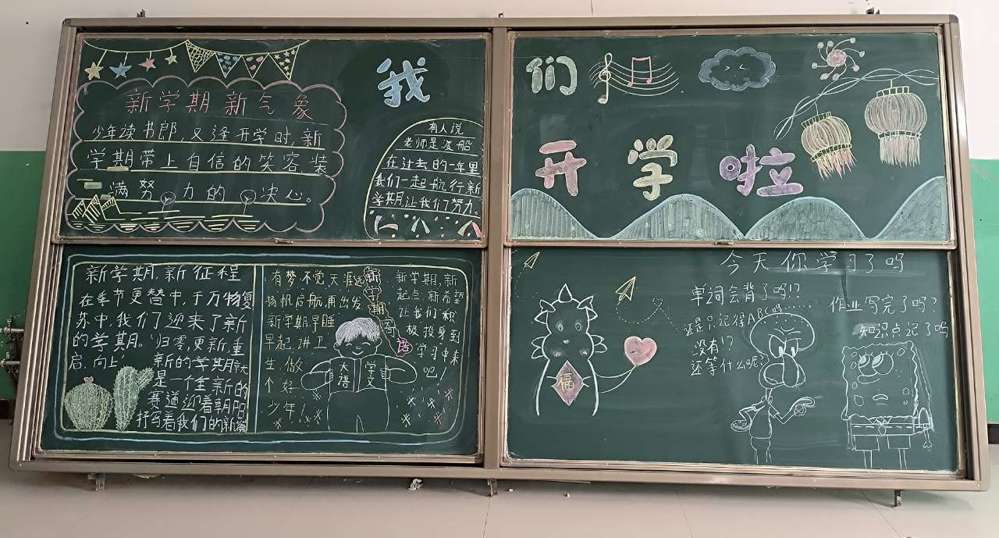 我们
开学啦
新学期新气象
少年读书郎,又逢开学时,新
学期带上自信的笑容装
满努力的决心。
有人说
老师是渡船
在过去的一年里
我们一起航行新
学期,让我们了努力。
新学期,新征程
在季节更替中,于万物复
苏中,我们迎来了新
的学期,归零更新重
启,向上。
新的学期
是一全新的
赛道迎着朝阳
抒写着我们的新篇
有梦不觉天涯远
扬帆启航,再出发
新学期,早睡
早起,讲卫
生,做
个好
少年!
新学期语
天语
学文
新学期,新
起点,新希望
让我们积
极投身到
学习中来
吧!
今天你学习了吗
单词会背了吗!?
还是只记得ABC吗
没有!?
还等什么呢?
作业写完了吗?
知识点记了吗
福